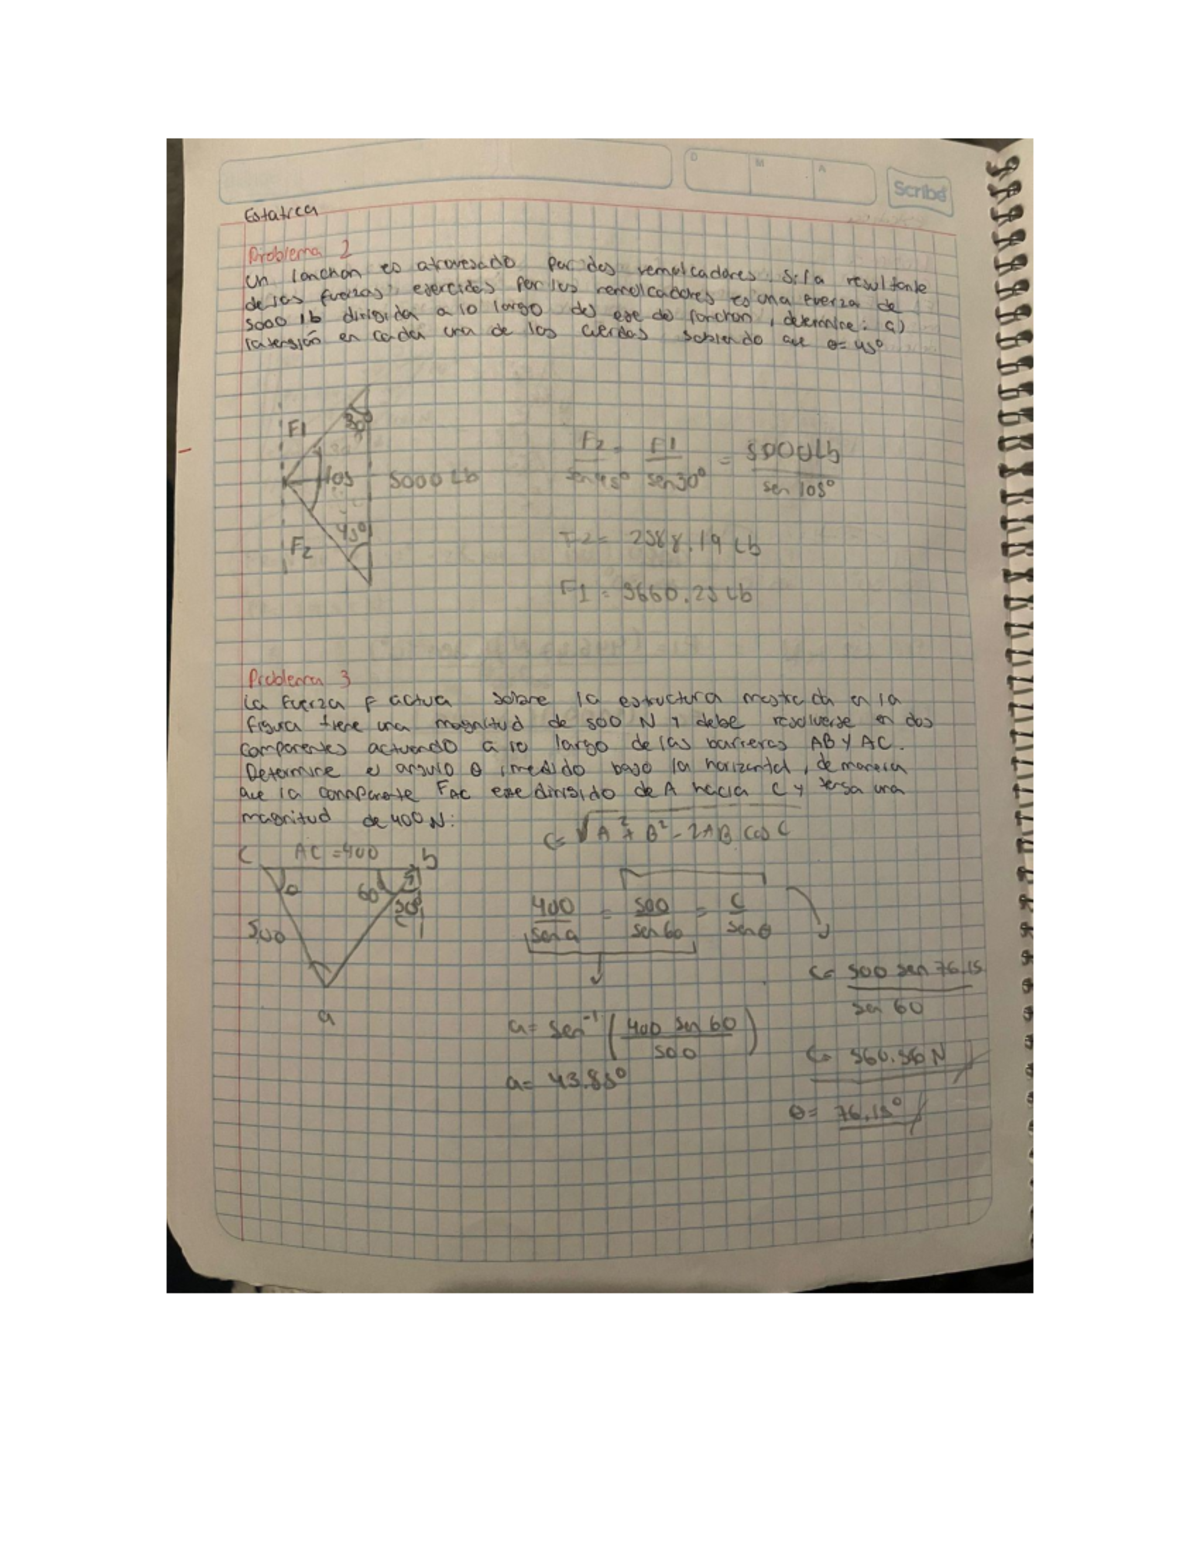 D M A
Scribe
Estatica
Problema 2
Un lanchon es atravesado por dos remolcadores. Si la resultante
de las fuerzas ejercidas por los remolcadores es una fuerza de
5000 lb dirigida a lo largo del eje de lanchon, determine: a)
la tensión en cada una de los cuerdas sabiendo que θ=45°
F1
30°
105 5000 Lb
45°
F2
F2 = F1 = 5000Lb
sen45° sen30° sen 105°
F2= 2588.19 Lb
F1= 3660.25 Lb
Problema 3
La fuerza F actua sobre la estructura mostrada en la
figura tiene una magnitud de 500 N y debe resolverse en dos
componentes actuando a lo largo de las barreras AB y AC.
Determine el angulo θ, medido bajo la horizontal, de manera
que la componente FAC este dirigido de A hacia C y tenga una
magnitud de 400 N:
C=√A²+B²-2AB cos C
C AC=400 b
θ 60
500
a
400 = 500 = C
sen a sen 60 sen θ
C= 500 sen 76.15
sen 60
a= sen⁻¹(400 sen 60
500)
C= 560.56 N
a= 43.85°
θ= 76.15°